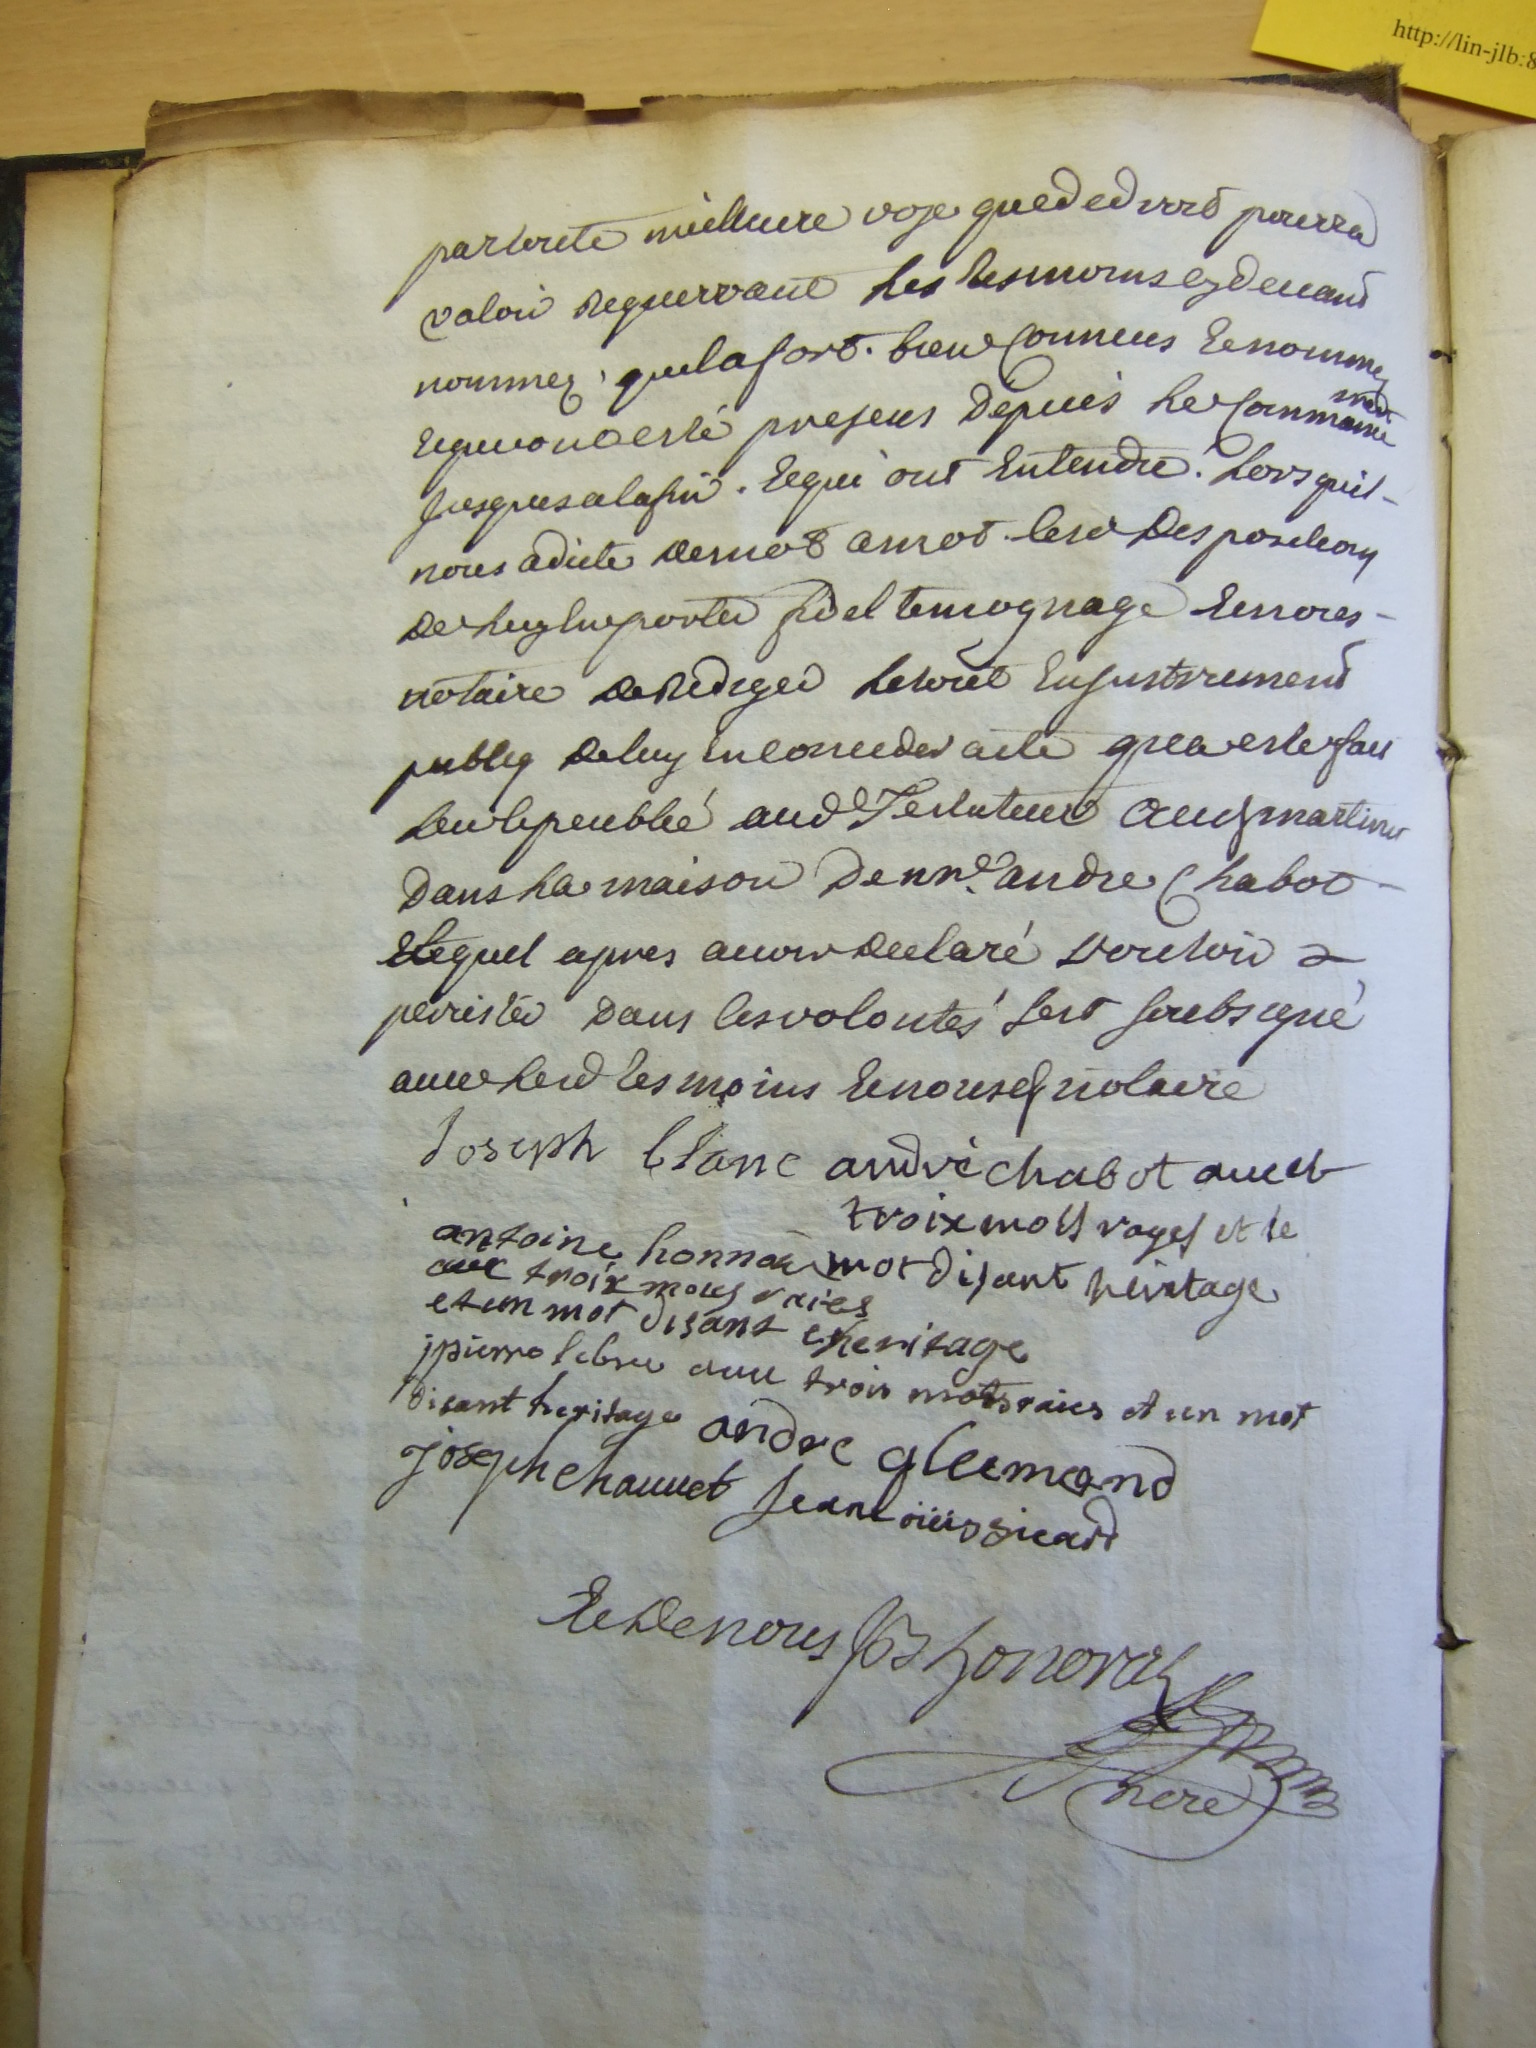 http://lin-jlb:8
par toute meilleure voye que de droit pourra
valoir requervant les tesmoins cy devant
nommez, quil a fort bien connus et nommez
et qui ont esté presens depuis le commancemant
jusques a la fin. et qui ont entendu lors quil
nous a dicté de mot a mot lesd disposition
de luy en porter fidel temognage et nous
notaire de rediger le tout en justrument
publiq de luy en conceder acte que a esté fait
leu et publié aud Testateur aud St martin
dans la maison de mre andre Chabot
lequel apres avoir declaré vouloir
peristér dans ses volontés sest soubsigné
avec lesd tesmoins et nous notaire
Joseph blanc andré chabot avec
troix mots rayes et le
antoine honnora mot disant heirtage
avec troix mots raies
et un mot disans heritage
jpierre lebre avec trois mots raies et un mot
disant heritage andre gleimand
joseph chauvet jean loüis sicard
Et de nous Jos honorat
nore